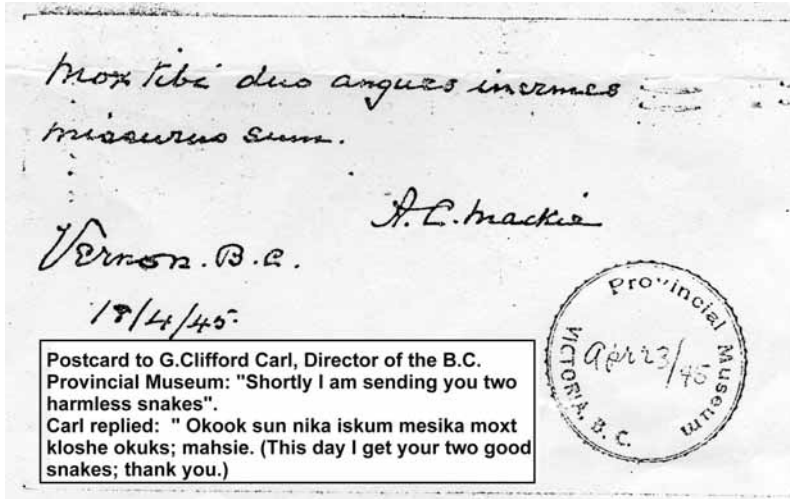 Mox tibi duo angues inermes
missurus sum.
A. C. Mackie
Vernon. B.C.
18/4/45.
Provincial Museum
Apr 23/45
VICTORIA, B. C.
Postcard to G.Clifford Carl, Director of the B.C.
Provincial Museum: "Shortly I am sending you two
harmless snakes".
Carl replied:  " Okook sun nika iskum mesika moxt
kloshe okuks; mahsie. (This day I get your two good
snakes; thank you.)